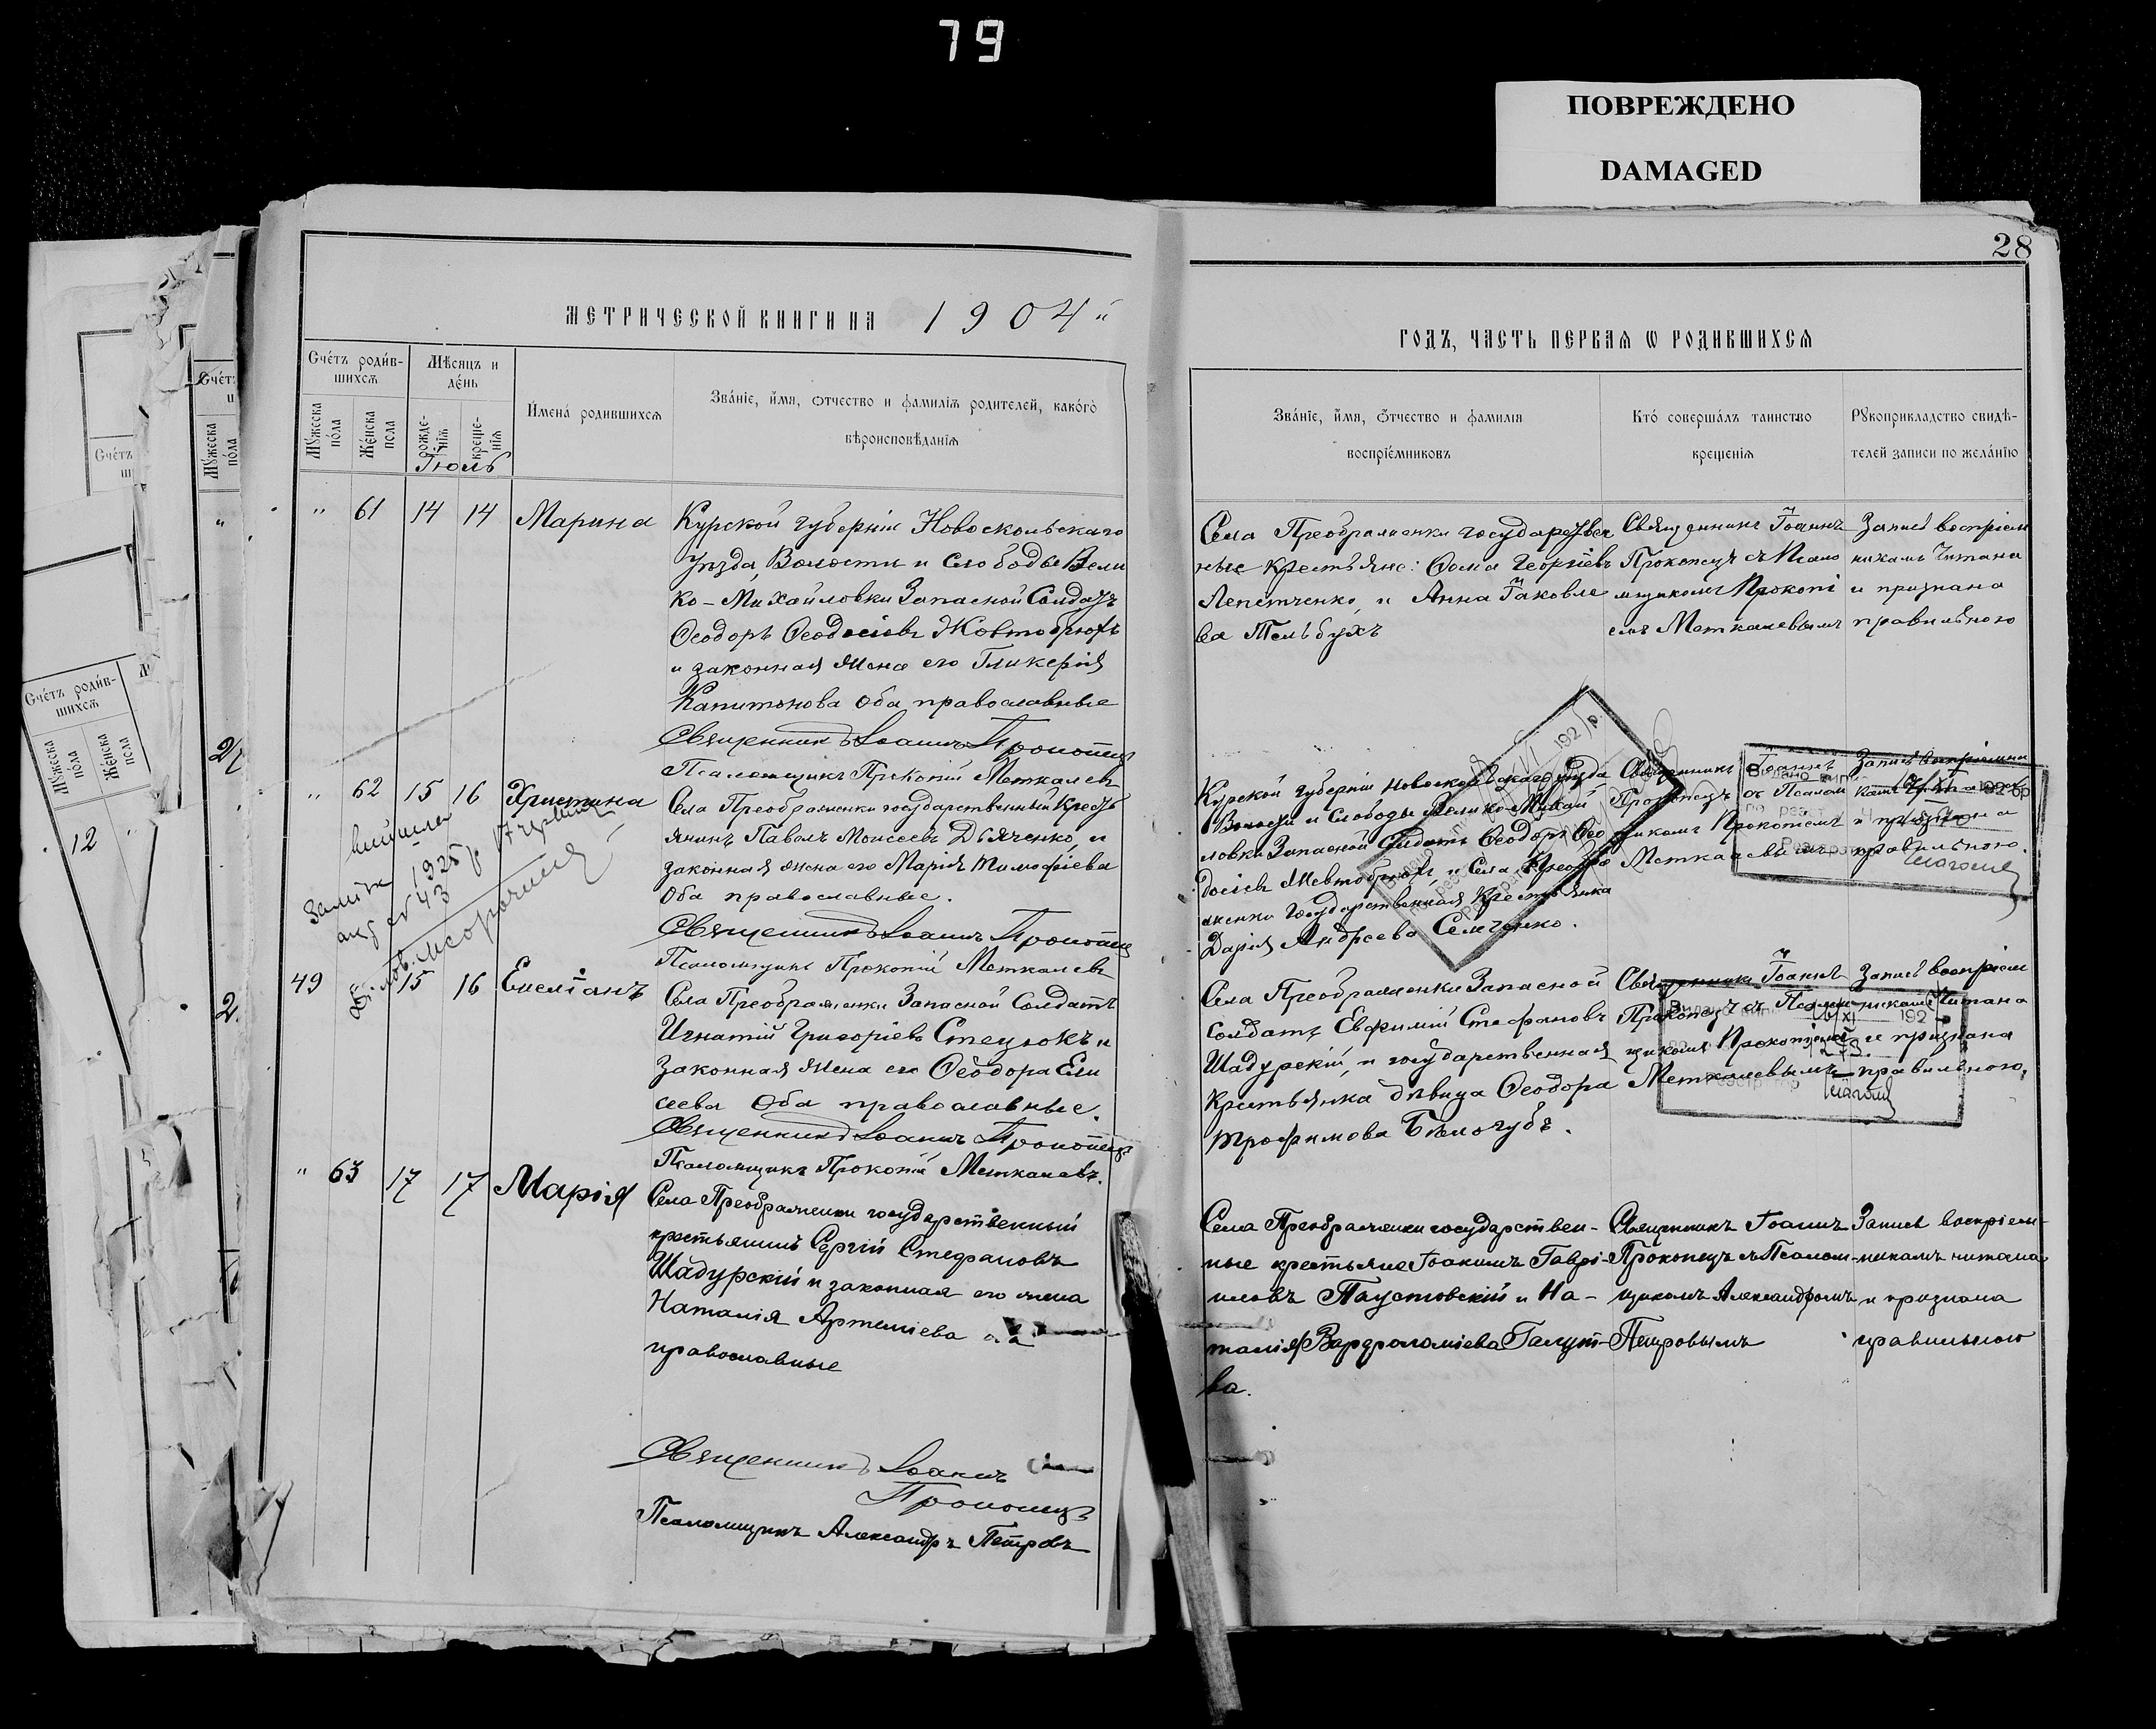 79
ПОВРЕЖДЕНО
DAMAGED
28
МЕТРИЧЕСКОЙ КНИГИ НА 1904
ГОДЪ, ЧАСТЬ ПЕРВАЯ Ѡ РОДИВШИХСЯ
Счетъ родив-
шихся
Мѣсяцъ и
день
Имена родившихся
Званіе, имя, отчество и фамилія родителей, какого
вѣроисповѣданія
Мужеска пола
Женска пола
рожде-
нія
креще-
нія
Іюль
Званіе, имя, отчество и фамилія
воспріемниковъ
Кто совершалъ таинство
крещенія
Рукоприкладство свидѣ-
телей записи по желанію
" 61 14 14 Марина
Курской губерніи Новоскольскаго
уѣзда, Волости и Слободы Вели
ко-Михайловки Запасной Солдатъ
Ѳеодоръ Ѳеодосіевъ Жовтобрюхъ
и законная жена его Гликерія
Капитонова Оба православные
Священникъ Іоаннъ Прокопецъ
Псаломщикъ Прокопій Меткалевъ
Села Преображенки государствен
ные крестьяне: Ѳома Георгіевъ
Лепетченко, и Анна Іаковле
ва Тельбухъ
Священникъ Іоаннъ
Прокопецъ съ Псало
мщикомъ Прокопі
емъ Меткалевымъ
Запись воспріем
никамъ Читана
и признана
правильною
" 62 15 16 Христина
Села Преображенки государственный Крест
янинъ Павелъ Моисеевъ Дьяченко, и
законная жена его Марія Тимофіева
Оба православные.
Священникъ Іоаннъ Прокопецъ
Псаломщикъ Прокопій Меткалевъ
1925 р.
43
Курской губерніи Новоскольскаго уѣзда
Волости и Слободы Велико-Михай
ловки Запасной Солдатъ Ѳеодоръ Ѳео
досіевъ Жевтобрюхъ, и Села Преобра
женки Государственная Крестьянка
Дарія Андреева Семченко.
Священникъ Іоаннъ
Прокопецъ съ Псалом
щикомъ Прокопіемъ
Меткалевымъ
Запись воспріемни
камъ Читана
и признана
правильною.
49 " 15 16 Емеліанъ
Села Преображенки Запасной Солдатъ
Игнатій Григоріевъ Стецюкъ и
Законная жена его Ѳеодора Ели
сеева Оба православные.
Священникъ Іоаннъ Прокопецъ
Псаломщикъ Прокопій Меткалевъ.
Села Преображенки Запасной
Солдатъ Евфимій Стефановъ
Шадурскій, и государственная
Крестьянка дѣвица Ѳеодора
Трофимова Бѣлогубъ.
Священникъ Іоаннъ
Прокопецъ съ Псалом
щикомъ Прокопіемъ
Меткалевымъ
Запись воспріем
никамъ Читана
и признана
правильною,
" 63 17 17 Марія
Села Преображенки государственный
крестьянинъ Сергій Стефановъ
Шадурскій и законная его жена
Наталія Артеміева оба
православные
Священникъ Іоаннъ
Прокопецъ
Псаломщикъ Александръ Петровъ
Села Преображенки государствен-
ные крестьяне Іоакимъ Гаврі-
иловъ Паустовскій и На-
талія Варфоломіева Галут-
ва.
Священникъ Іоаннъ
Прокопецъ съ Псалом-
щикомъ Александромъ
Петровымъ
Запись воспріем-
никамъ читана
и признана
правильною
Счетъ родив-
шихся
Мужеска пола
Женска пола
12